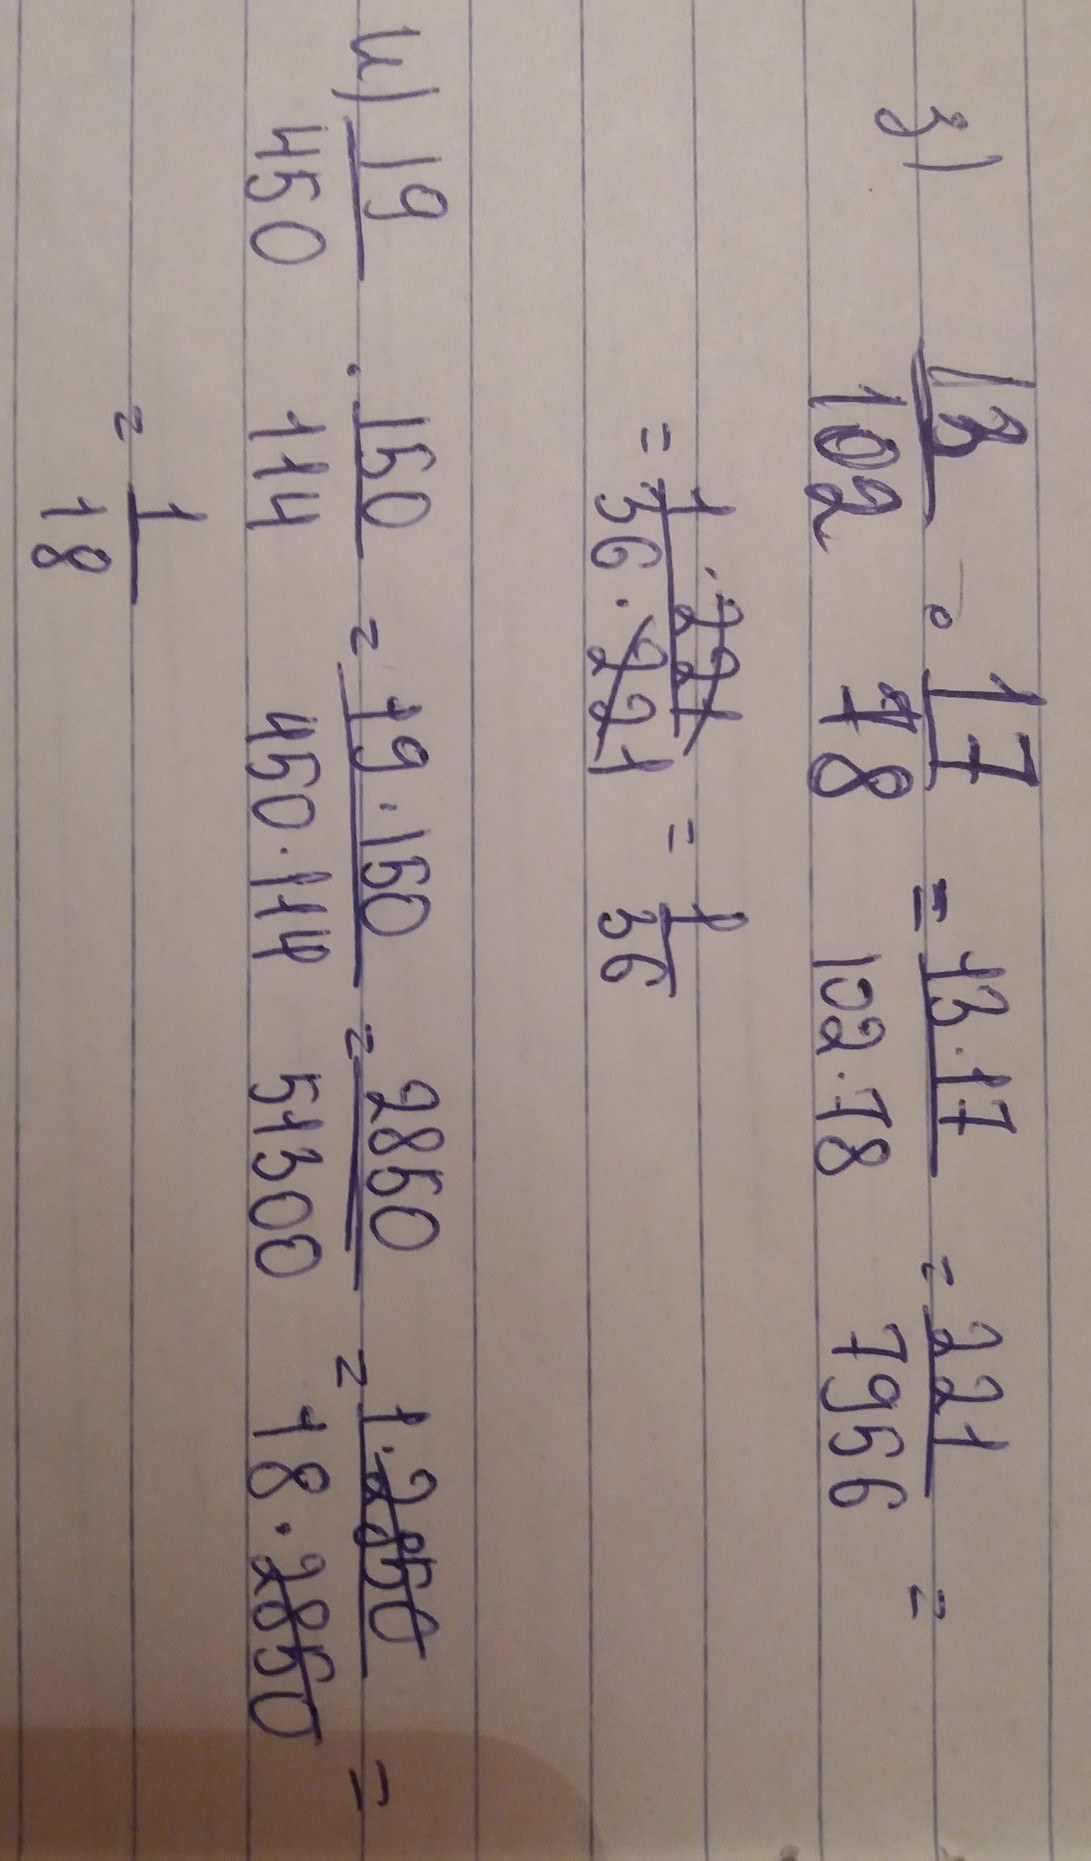 з) 13/102 · 17/78 = 13·17/102·78 = 221/7956 =
= 1·221/36·221 = 1/36
и) 19/450 · 150/114 = 19·150/450·114 = 2850/51300 = 1·2850/18·2850 =
= 1/18